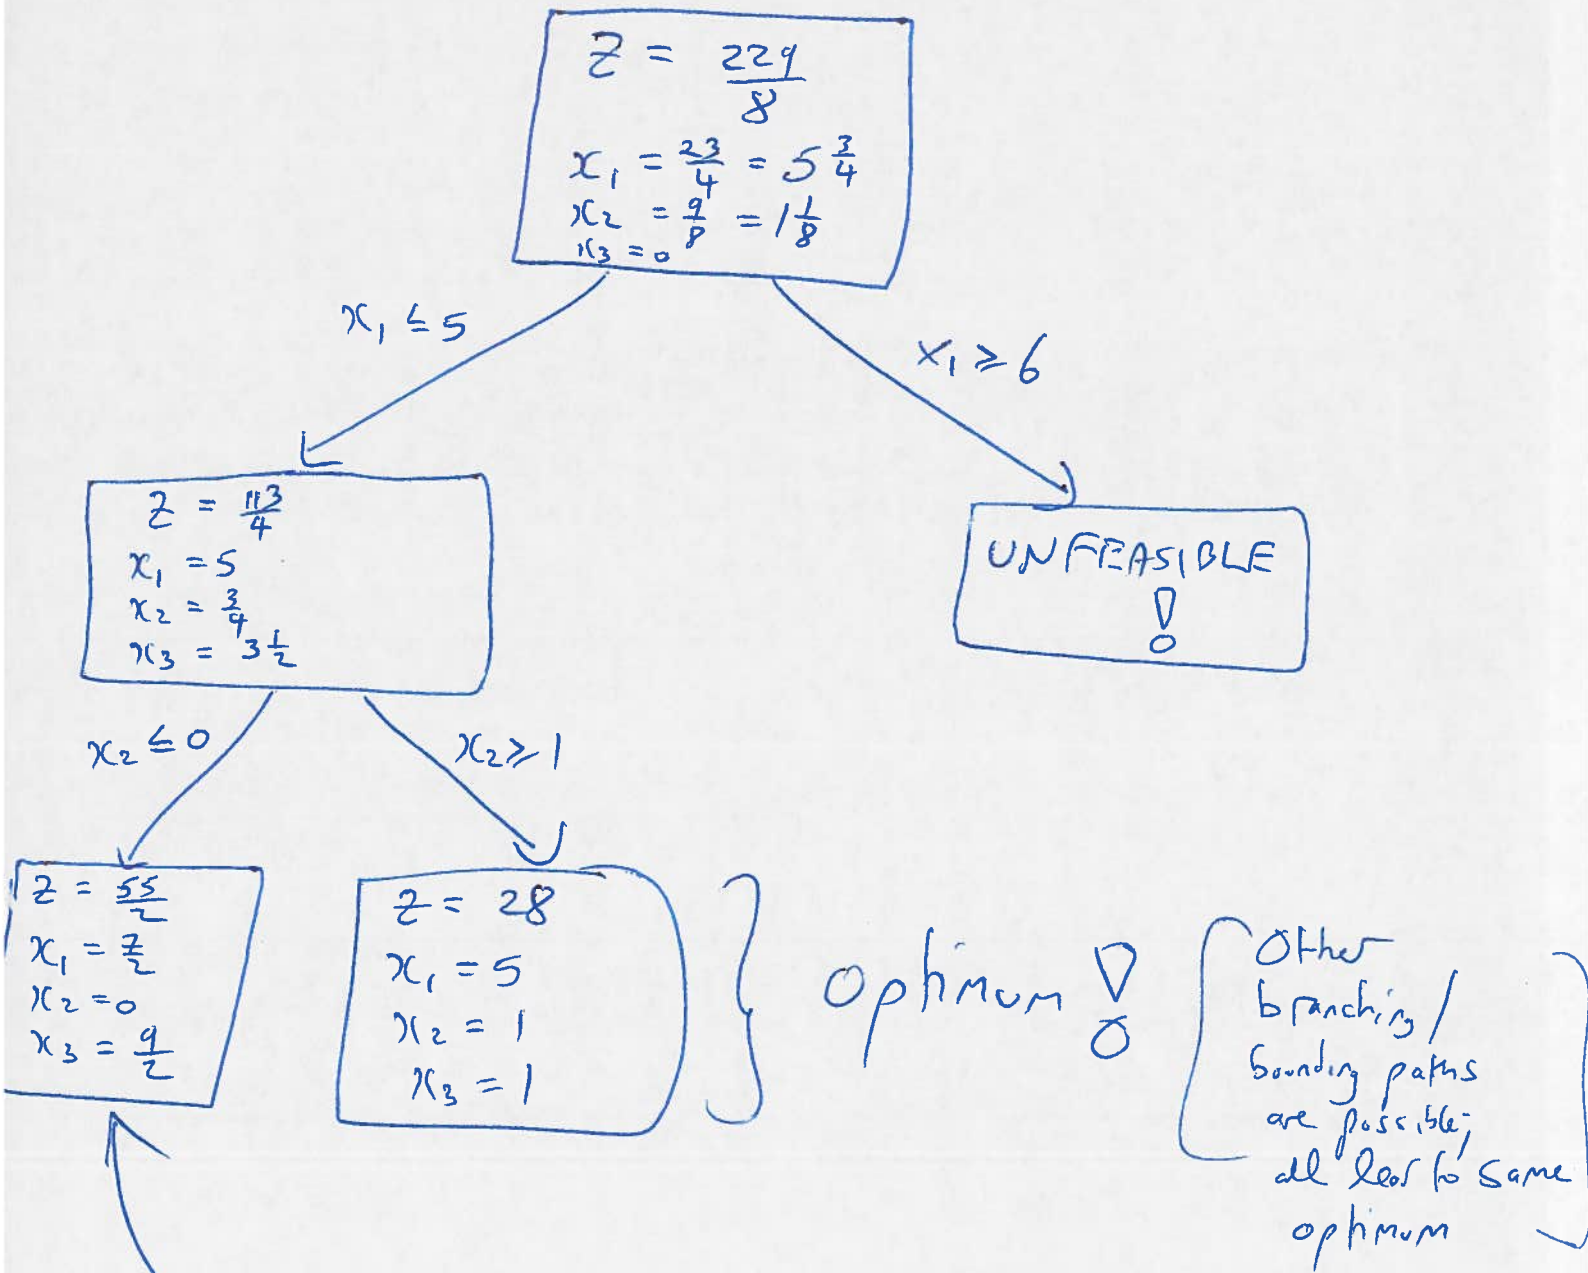 Z = 229/8
x₁ = 23/4 = 5 3/4
x₂ = 9/8 = 1 1/8
x₃ = 0
x₁ ≤ 5
x₁ ≥ 6
Z = 113/4
x₁ = 5
x₂ = 3/4
x₃ = 3 1/2
UNFEASIBLE
!
x₂ ≤ 0
x₂ ≥ 1
Z = 55/2
x₁ = 7/2
x₂ = 0
x₃ = 9/2
Z = 28
x₁ = 5
x₂ = 1
x₃ = 1
optimum !
Other
branching/
bounding paths
are possible;
all lead to same
optimum